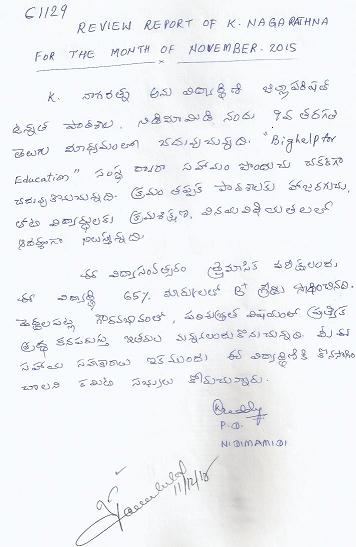 61129
REVIEW REPORT OF K. NAGARATHNA
FOR THE MONTH OF NOVEMBER. 2015
K. నాగరత్న అను విద్యార్థిని జిల్లాపరిషత్
ఉన్నత పాఠశాల, నిడిమామిడి నందు 9వ తరగతి
తెలుగు మాధ్యమంలో చదువుచున్నది. "Bighelp for
Education" సంస్థ ద్వారా సహాయం పొందుచు చక్కగా
చదువుకొనుచున్నది. క్రమం తప్పక పాఠశాలకు హాజరగుచు,
తోటి విద్యార్థులకు క్రమశిక్షణ, వినయవిధేయతలలో
ఆదర్శంగా నిలుస్తున్నది.
ఈ విద్యాసంవత్సరం త్రైమాసిక పరీక్షలందు
ఈ విద్యార్థి 65% మార్కులలో గ్రేడు సాధించినది.
పెద్దలపట్ల గౌరవభావంతో, పరిశుభ్రత విషయంలో ప్రత్యేక
శ్రద్ధ కనపరుస్తూ ఇతరుల మన్ననలందుకొనుచున్నది. మీ
సహాయ సహకారాలు ఇకముందు ఈ విద్యార్థినికి కొనసాగిం
చాలని కమిటి సభ్యులు కోరుచున్నారు.
P.D.
NIDIMAMIDI
11/12/15